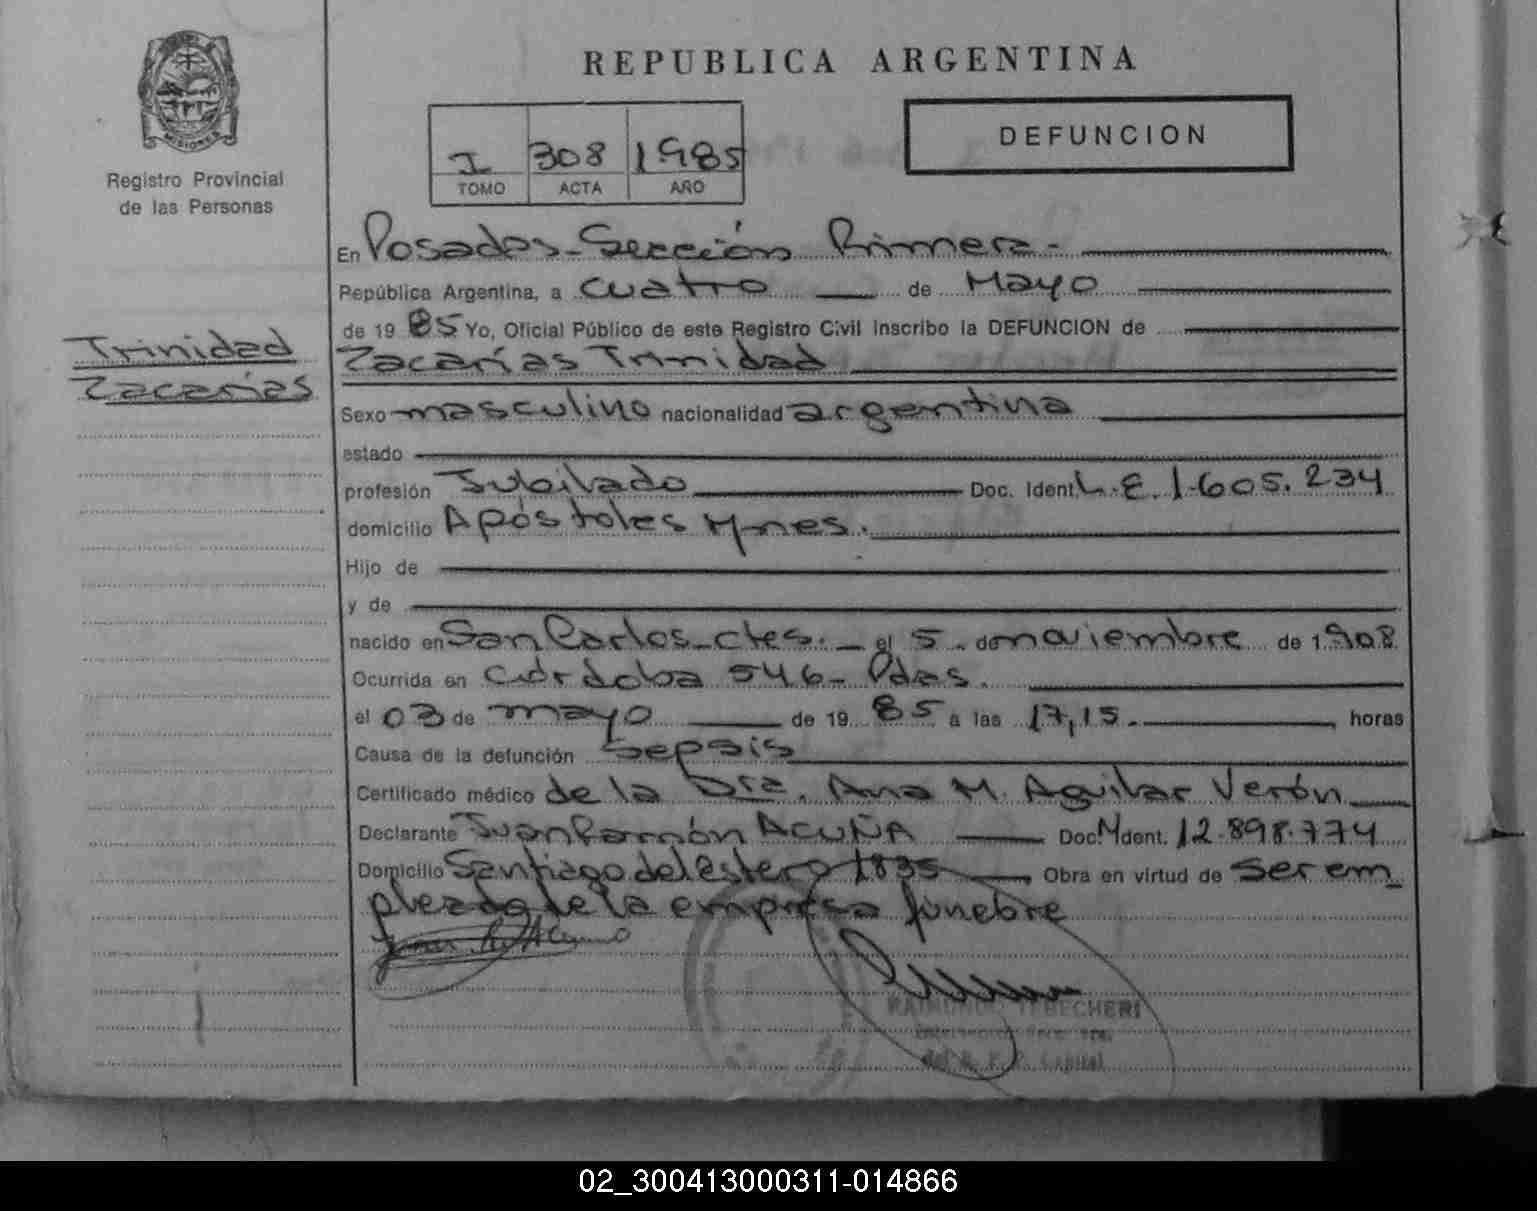 MISIONES
Registro Provincial
de las Personas
REPUBLICA ARGENTINA
I 308 1985
TOMO ACTA AÑO
DEFUNCION
En Posadas - Sección Primera -
República Argentina, a cuatro de Mayo
de 1985 Yo, Oficial Público de este Registro Civil inscribo la DEFUNCION de
Trinidad
Zacarías
Zacarías Trinidad
Sexo masculino nacionalidad argentina
estado
profesión Jubilado Doc. Ident. L.E. 1.605.234
domicilio Apóstoles Mnes.
Hijo de
y de
nacido en San Carlos - Ctes. el 5 de noviembre de 1908
Ocurrida en Córdoba 546 - Pdas.
el 03 de mayo de 1985 a las 17,15. horas
Causa de la defunción Sepsis
Certificado médico de la Dra. Ana M. Aguilar Verón
Declarante Juan Ramón ACUÑA Doc. Ident. 12.898.774
Domicilio Santiago del Estero 1835 Obra en virtud de ser em
pleado de la empresa fúnebre
RAIMUNDO TEBECHERI
Capital
02_300413000311-014866